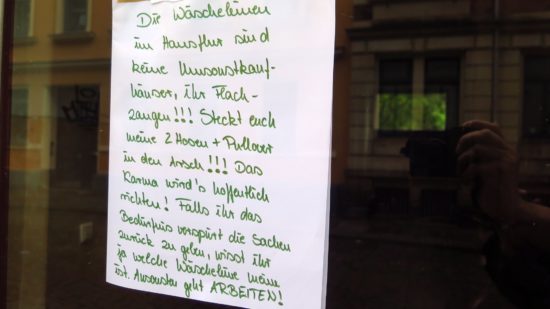 Die Wäscheleinen
im Hausflur sind
keine Umsonstkauf-
häuser, ihr Flach-
zangen!!! Steckt euch
meine 2 Hosen + Pullover
in den Arsch!!! Das
Karma wird's hoffentlich
richten! Falls ihr das
Bedürfnis verspürt die Sachen
zurück zu geben, wisst ihr
ja welche Wäscheleine meine
ist. Ansonsten geht ARBEITEN!